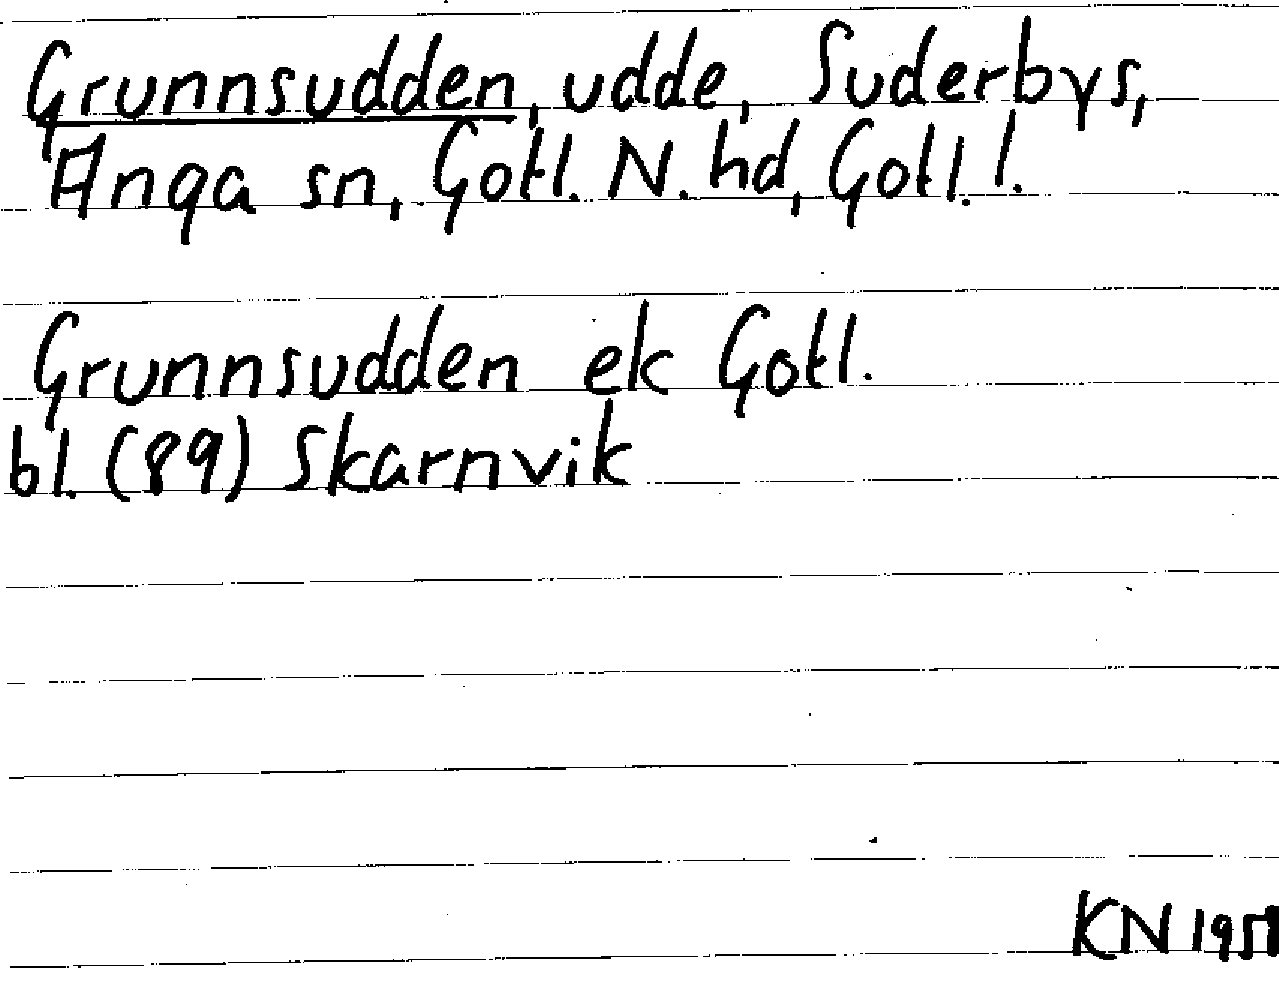 Grunnsudden, udde, Suderbys,
Anga sn, Gotl. N. hd, Gotl. l.
Grunnsudden ek Gotl.
bl. (89) Skarnvik
KN